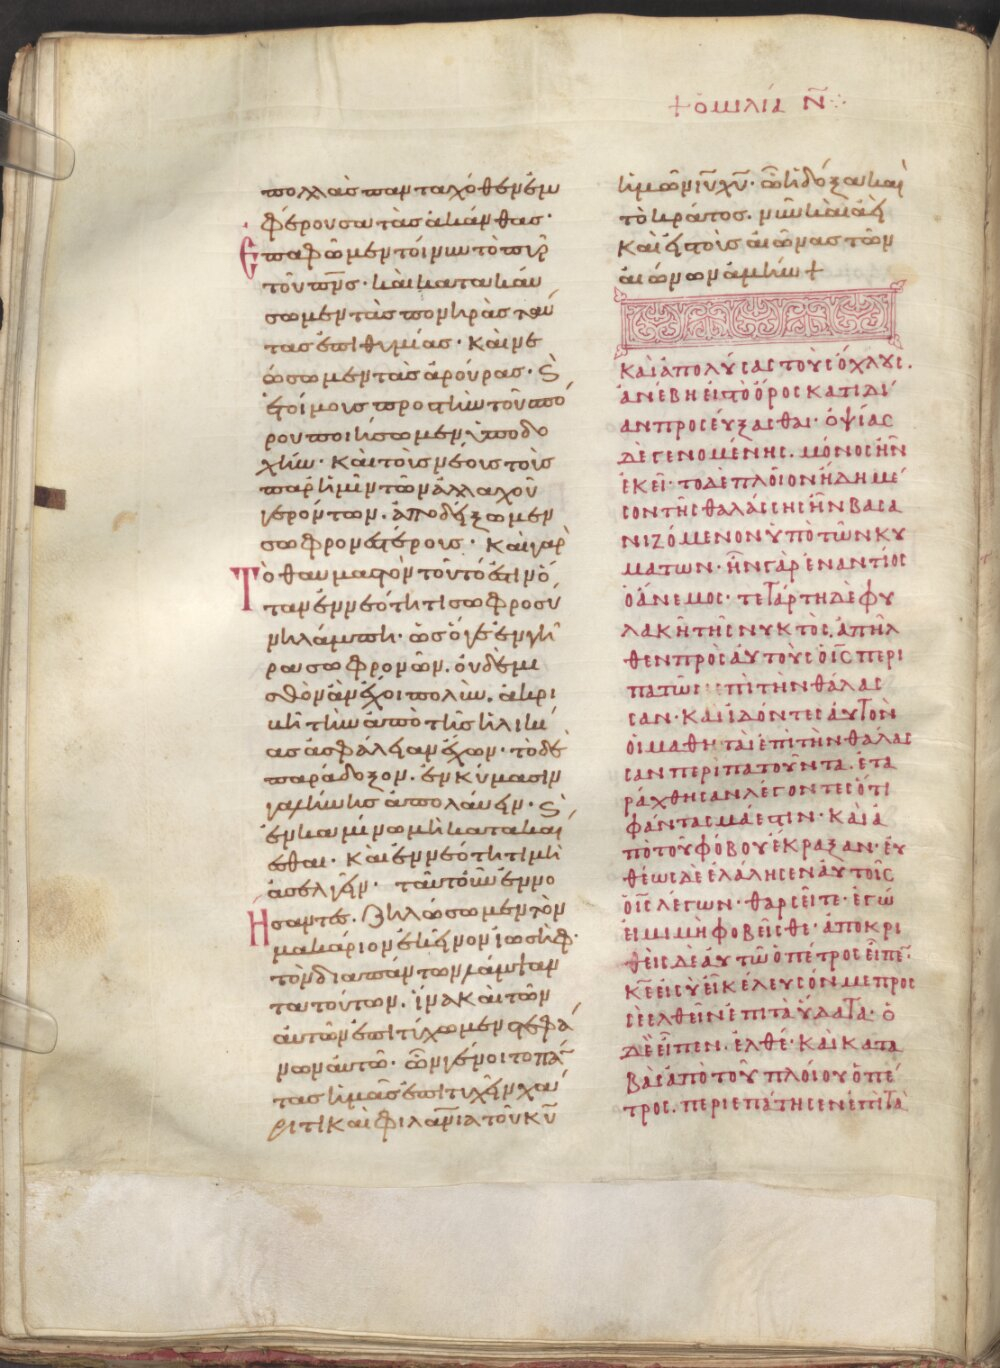 + ὁμιλία Ν̃
πολλὰς πανταχόθεν ἐμ
φέρουσα τὰς ἀκάνθας·
ἐπαφῶμεν τοίνυν τὸ πῦρ
τοῦ πν̅ς· καὶ κατακαύ
σωμεν τὰς πονηρὰς ταύ
τας ἐπιθυμίας· καὶ νε
ώσωμεν τὰς ἀρούρας· ϗ
ἑτοίμους πρὸς τὴν τοῦ σπό
ρου ποιήσωμεν ὑποδο
χήν· καὶ τοὺς νέους τοὺς
παρ' ἡμῖν τῶν ἀλλαχοῦ
γερόντων. ἀποδείξωμεν
σωφρονεστέρους· καὶ γὰρ
Τὸ θαυμαστὸν τοῦτό ἐστιν ὅ
ταν ἐν νεότητι σωφροσύ
νη λάμπῃ· ὡς ὅγε ἐν γή
ρᾳ σωφρονῶν. οὐδὲ μι
σθὸν ἂν ἔχοι πολὺν. ἀκρι
βῆ τὴν ἀπὸ τῆς ἡλικί
ας ἀσφάλειαν ἔχων· τὸ δὲ
παράδοξον. ἐν κύμασιν
γαλήνης ἀπολαύειν· ϗ
ἐν καμίνω μὴ κατακαί
εσθαι· καὶ ἐν νεότητι μὴ
ἀσελγεῖν· ταῦτ' οὖν ἐννο
Ησαντες. ζηλώσωμεν τὸν
μακάριον ἐκεῖνον ἰωσήφ·
τὸν διὰ πάντων λάμψαν
τα τούτων. ἵνα καὶ τῶν
αὐτῶν ἐπιτύχωμεν στεφά
νων αὐτῶ· ὧν γένοιτο πάν
τας ἡμᾶς ἐπιτυχεῖν χά
ριτι καὶ φιλαν̅ια τοῦ κυ̅
ἡμῶν ιυ̅ χυ̅· ὧ ἡ δόξα καὶ
τὸ κράτος. νῦν καὶ ἀεὶ
καὶ εἰς τοὺς αἰῶνας τῶν
αἰώνων ἀμήν +
Καὶ ἀπολύσας τοὺς ὄχλους.
ἀνέβη εἰς τὸ ὄρος κατιδί
αν προσεύξασθαι· ὀψίας
δὲ γενομένης. μόνος ἦν
ἐκεῖ· τὸ δὲ πλοῖον ἤδη μέ
σον τῆς θαλάσσης ἦν βασα
νιζόμενον ὑπὸ τῶν κυ
μάτων· ἦν γὰρ ἐναντίος
ὁ ἄνεμος· τετάρτη δὲ φυ
λακῆ τῆς νυκτὸς. ἀπῆλ
θεν πρὸς αὐτοὺς ὁ ις̅ περι
πατῶν ἐπὶ τὴν θάλασ
σαν· καὶ ἰδόντες αὐτὸν
οἱ μαθηταὶ ἐπὶ τὴν θάλασ
σαν περιπατοῦντα. ἐτα
ράχθησαν λέγοντες ὅτι
φάντασμά ἐστιν· καὶ ἀ
πὸ τοῦ φόβου ἔκραξαν· εὐ
θέως δὲ ἐλάλησεν αὐτοῖς
ὁ ις̅ λέγων· θαρσεῖτε· ἐγώ
εἰμι μὴ φοβεῖσθε· ἀποκρι
θεὶς δὲ αὐτῶ ὁ πέτρος εἶπε·
κε̅ εἰ σὺ εἶ κέλευσόν με πρὸς
σὲ ἐλθεῖν ἐπὶ τὰ ὕδατα· ὁ
δὲ εἶπεν. ἐλθέ· καὶ κατα
βὰς ἀπὸ τοῦ πλοίου ὁ πέ
τρος. περιεπάτησεν ἐπὶ τὰ